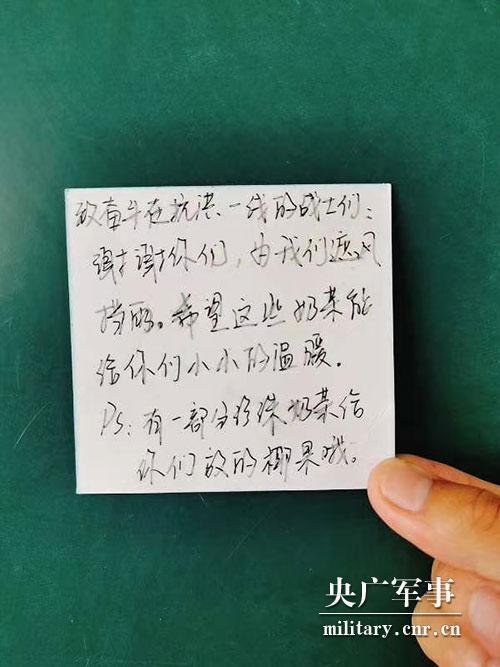 致奋斗在抗洪一线的战士们：
谢谢你们，为我们遮风
挡雨。希望这些奶茶能
给你们小小的温暖.
Ps：有一部分珍珠奶茶给
你们放的椰果哦。
央广军事
military.cnr.cn